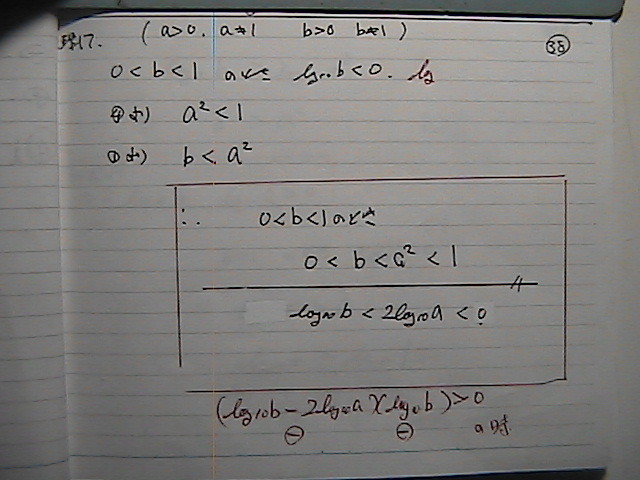 (a>0, a≠1 b>0 b≠1)
38
0<b<1 のとき log₁₀b<0.
②より) a²<1
①より) b<a²
∴ 0<b<1のとき
0<b<a²<1
log₁₀b<2log₁₀a<0
(log₁₀b-2log₁₀a)(log₁₀b)>0
⊖ ⊖ の時